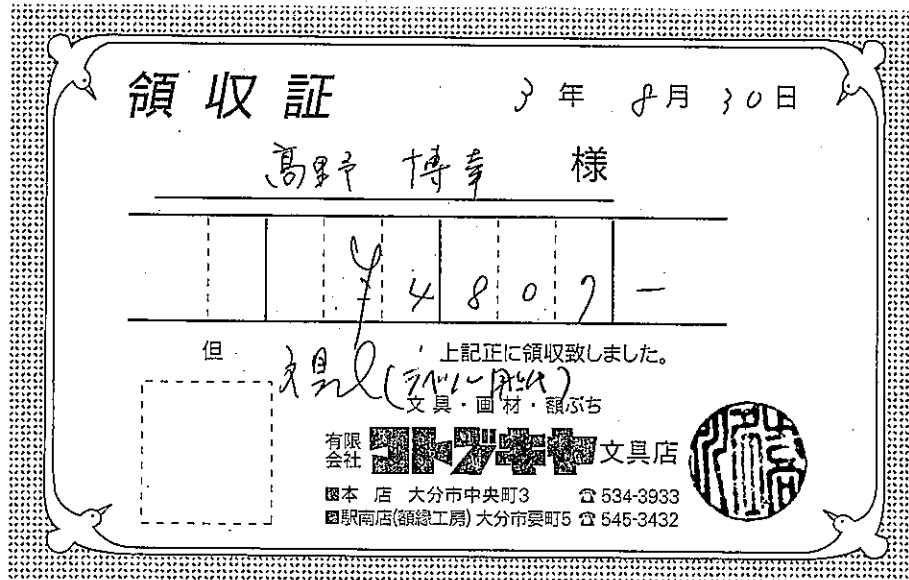 領収証 3年 8月 30日
高野 博幸 様
¥4807-
但 上記正に領収致しました。
文具(ラベル 他)
文具・画材・額ぶち
有限会社 コトブキヤ 文具店
本店 大分市中央町3 ☎534-3933
駅南店(額縁工房) 大分市要町5 ☎545-3432